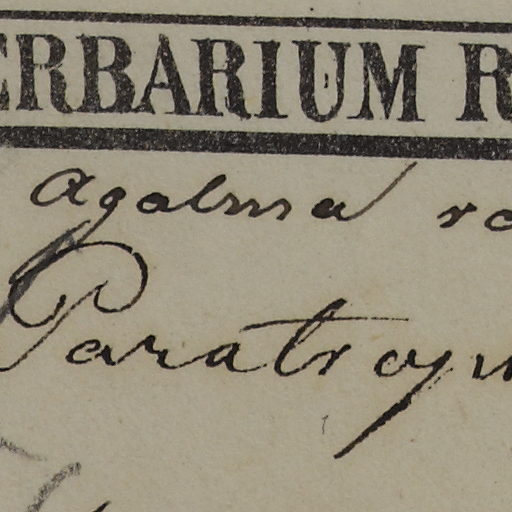 ERBARIUM R
Agalma ro
Paratrop